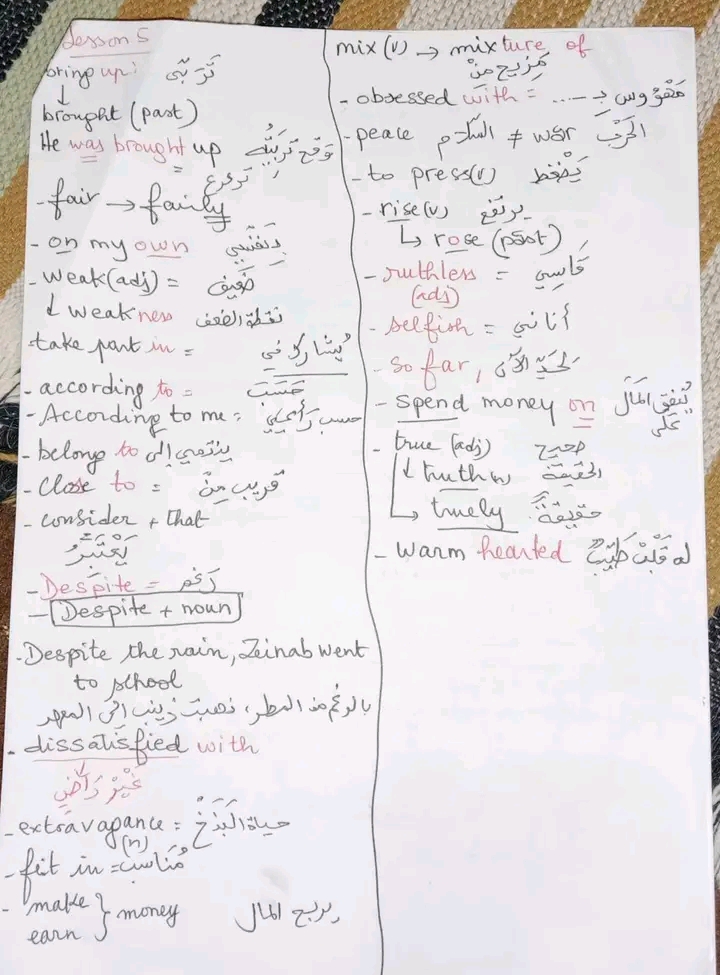 Lesson 5
bring up: تَرَبَّى
↓
brought (past)
He was brought up وقع تربيته
ترعرع
- fair → fairly
- on my own بنفسي
- weak (adj) = ضعيف
↓ weakness نقطة الضعف
- take part in = يُشارك في
- according to = حَسَبَ
- According to me = حسب رأيي
- belong to ينتمي إلى
- close to = قريب مِنْ
- consider + that
يَعْتَبِرُ
- Despite = رَغم
- Despite + noun
- Despite the rain, Zeinab went
to school
بالرغم من المطر، ذهبت زينب إلى المعهد
- dissatisfied with
غَيْرُ رَاضِي
- extravagance = حياة البَذَخْ
(n)
- fit in = مُناسب
- make } money يربح المال
earn
mix (v) → mixture of
مَزيج مِنْ
- obsessed with = مَهْوُوس بـ ....
- peace السَّلام ≠ war الحَرْبُ
- to press (v) يَضْغَط
- rise (v) يرتفع
↳ rose (past)
- ruthless = قَاسِي
(adj)
- selfish = أناني
- so far, لِحَدِّ الآن
- spend money on يُنفِق المَالَ
عَلَى
- true (adj) صحيح
↓ truth (n) الحقيقة
↳ truely حقيقةً
- warm hearted له قَلْبٌ طَيِّبٌ